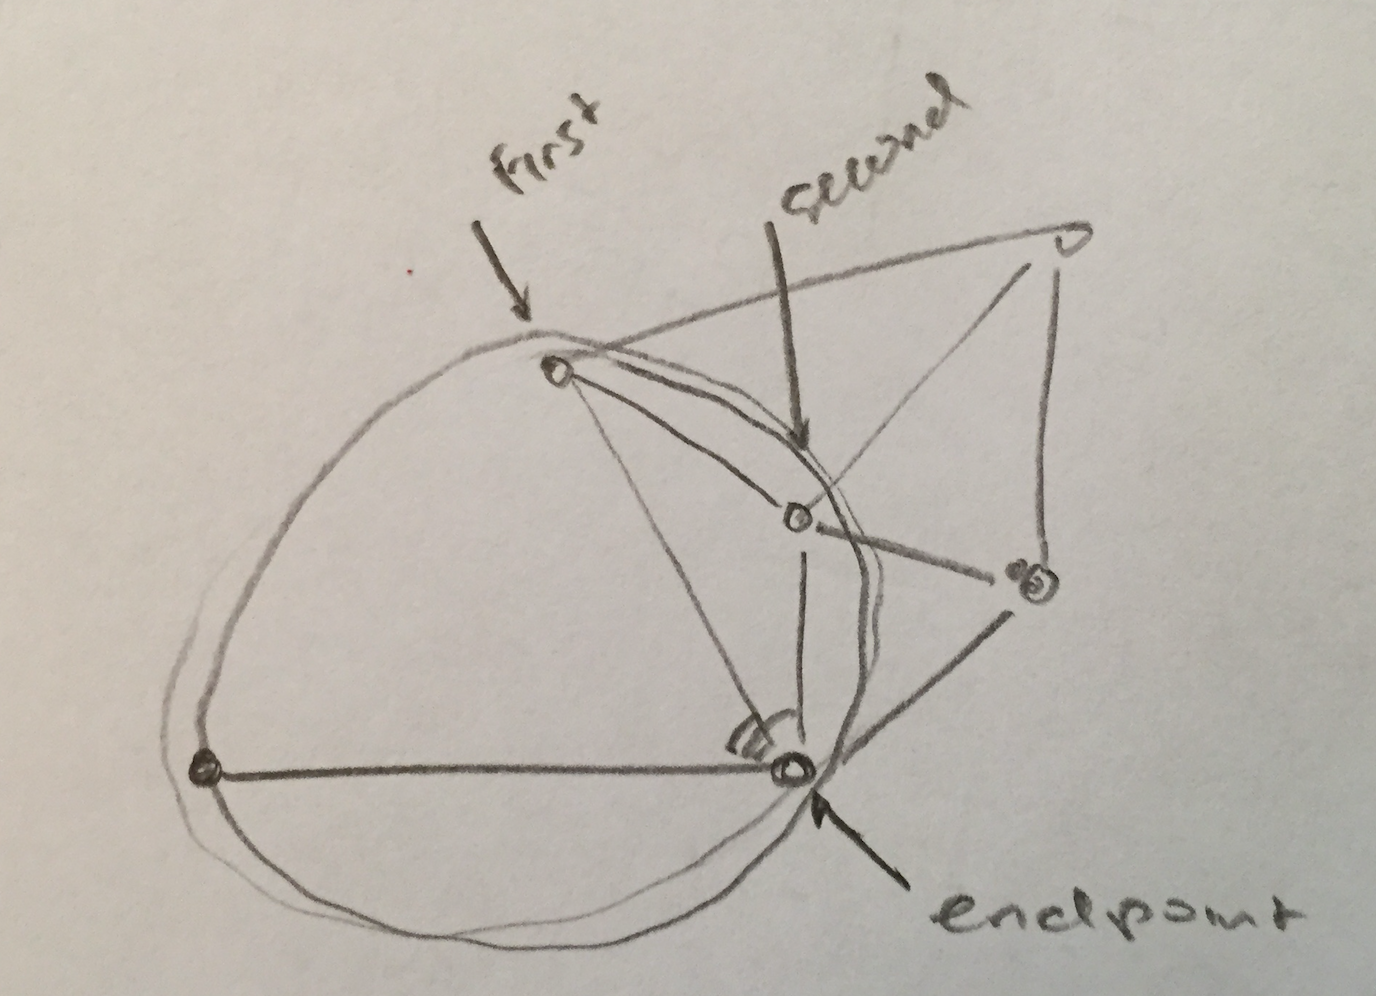 First
second
endpoint